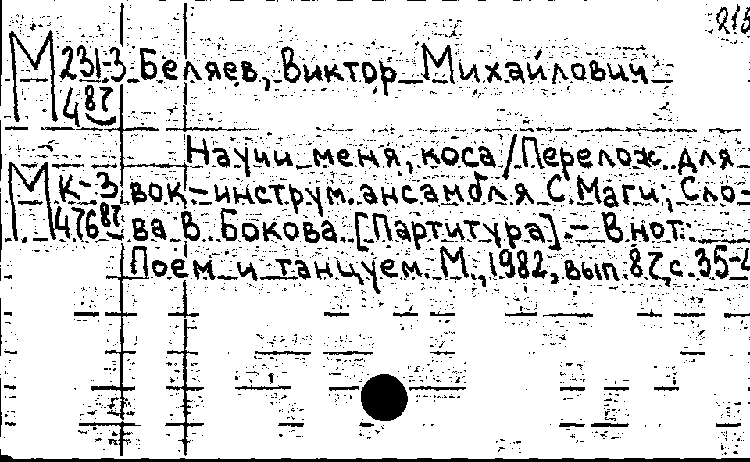 218
М 231-3 Беляев, Виктор Михайлович
487
Научи меня, коса / Перелож. для
М К-3 вок-инструм. ансамбля С. Маги; Сло-
47687 ва В. Бокова. [Партитура]. - В нот.:
Поем и танцуем. М., 1982, вып. 87, с. 35-4